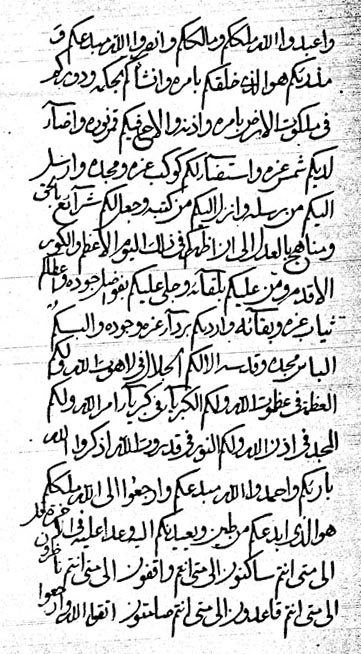 واعبدوا الله ملككم ومالككم وانصروا الله مبدعكم و
هو الذى خلقكم بامره وانشأكم بحكمه
فى ملكوت الارض بامره واذنه والاح فيكم قمر نوره واضآء
لديكم شمس عزه واستضآء لكم كوكب عزه ومجده وارسل
اليكم من رسله وانزل اليكم من كتبه وجعل لكم شرآئع الحق
ومناهج العدل الى ان اظهركم فى ذلك اليوم الاعظم والكور
الاقدم ومن عليكم بلقآئه وجلى عليكم بفواضل جوده واعطاكم
ثياب عزه وبقآئه واردىكم بردآء عزه وجوده والبسكم
الباس مجده وقدسه الا لكم الجلال فى لاهوت الله ولكم
العظمة فى عظموت الله ولكم الكبريآء فى كبريآء امر الله ولكم
المجد فى اذن الله ولكم النور فى قدروت الله اذكروا الله
بارئكم واحمدوا الله مبدعكم وارجعوا الى الله ملككم
هو الذى ابدعكم من طين ويعيدكم اليه وعدا عليه
الى متى انتم ساكنون الى متى انتم واقفون الى متى انتم
الى متى انتم قاعدون الى متى انتم صامتون اتقوا الله وارجعوا